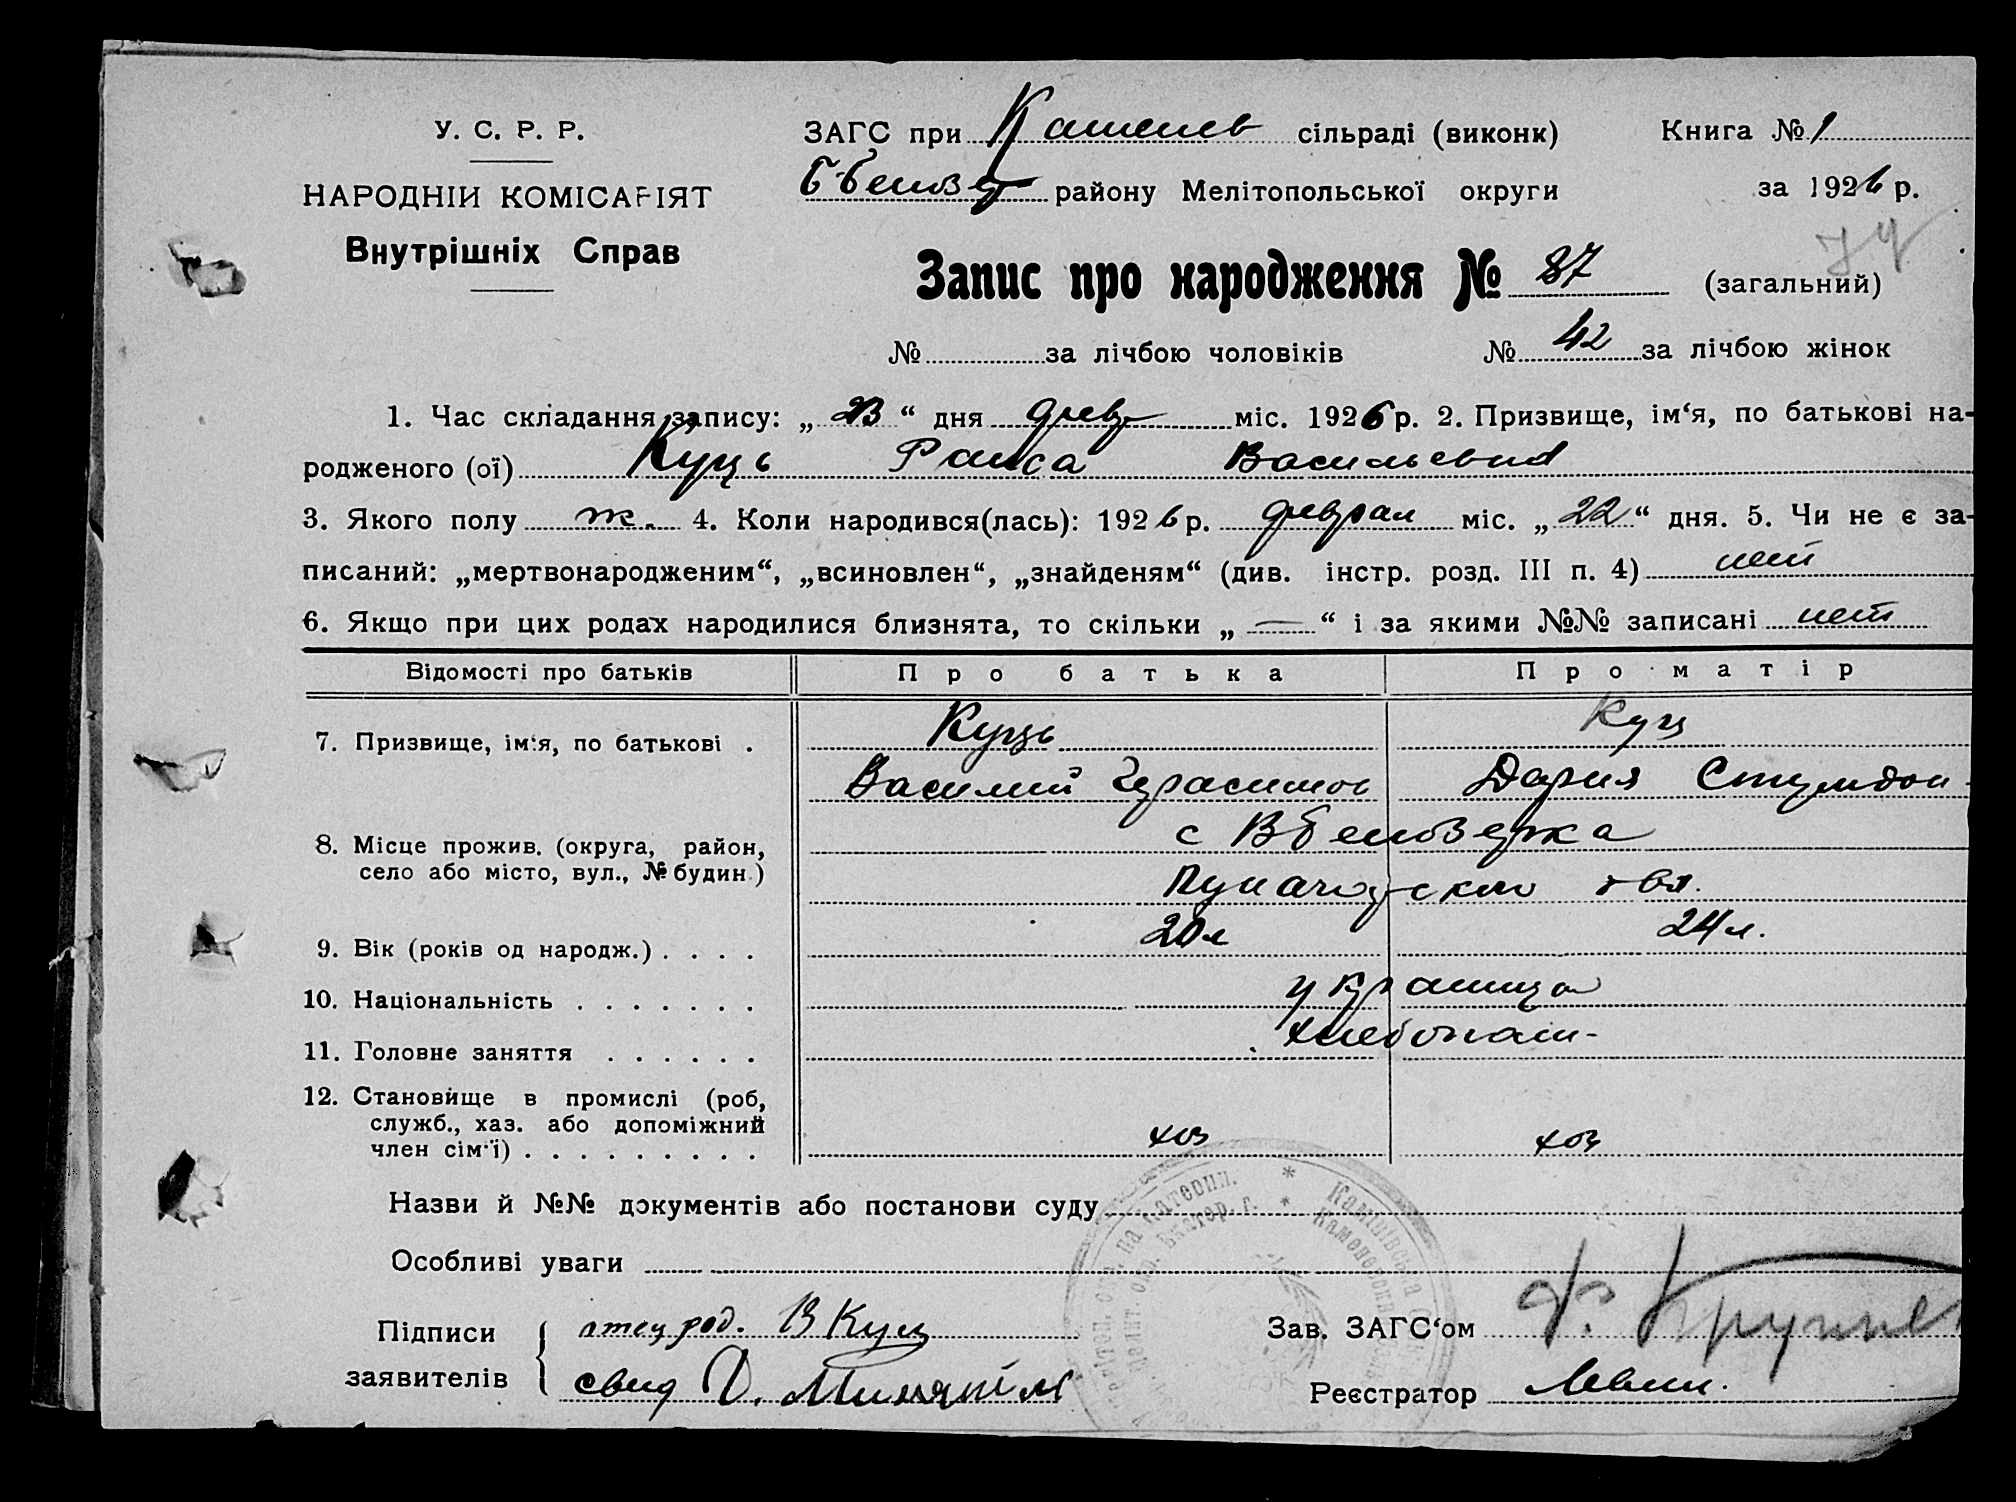 У. С. Р. Р.
НАРОДНІЙ КОМІСАРІЯТ
Внутрішніх Справ
ЗАГС при Каменев сільраді (виконк) Книга № 1
району Мелітопольської округи за 1926 р.
Запис про народження № 87 (загальний)
№ за лічбою чоловіків № 42 за лічбою жінок
1. Час складання запису: „ 23 “ дня февр міс. 1926 р. 2. Призвище, ім‘я, по батькові на-
родженого (ої) Куць Раиса Васильевна
3. Якого полу ж. 4. Коли народився(лась): 1926 р. феврал міс. „ 22 “ дня. 5. Чи не є за-
писаний: „мертвонародженим“, „всиновлен“, „знайденям“ (див. інстр. розд. III п. 4) нет
6. Якщо при цих родах народилися близнята, то скільки „ — “ і за якими №№ записані нет
Відомості про батьків Про батька Про матір
7. Призвище, ім‘я, по батькові . Куць Куц
Василий Герасимов Дария
8. Місце прожив. (округа, район, с Вбелозерка
село або місто, вул., № будин.)
9. Вік (років од народж.) . . . . 20 л 24 л.
10. Національність . . . . . . . украинца
11. Головне заняття . . . . . . хлебопаш-
12. Становище в промислі (роб,
служб., хаз. або допоміжний
член сім‘ї) . . . . . . . . . хоз хоз
Назви й №№ документів або постанови суду
Особливі уваги
Підписи отец род. В Куц Зав. ЗАГС‘ом
заявителів свид Реєстратор Левин.